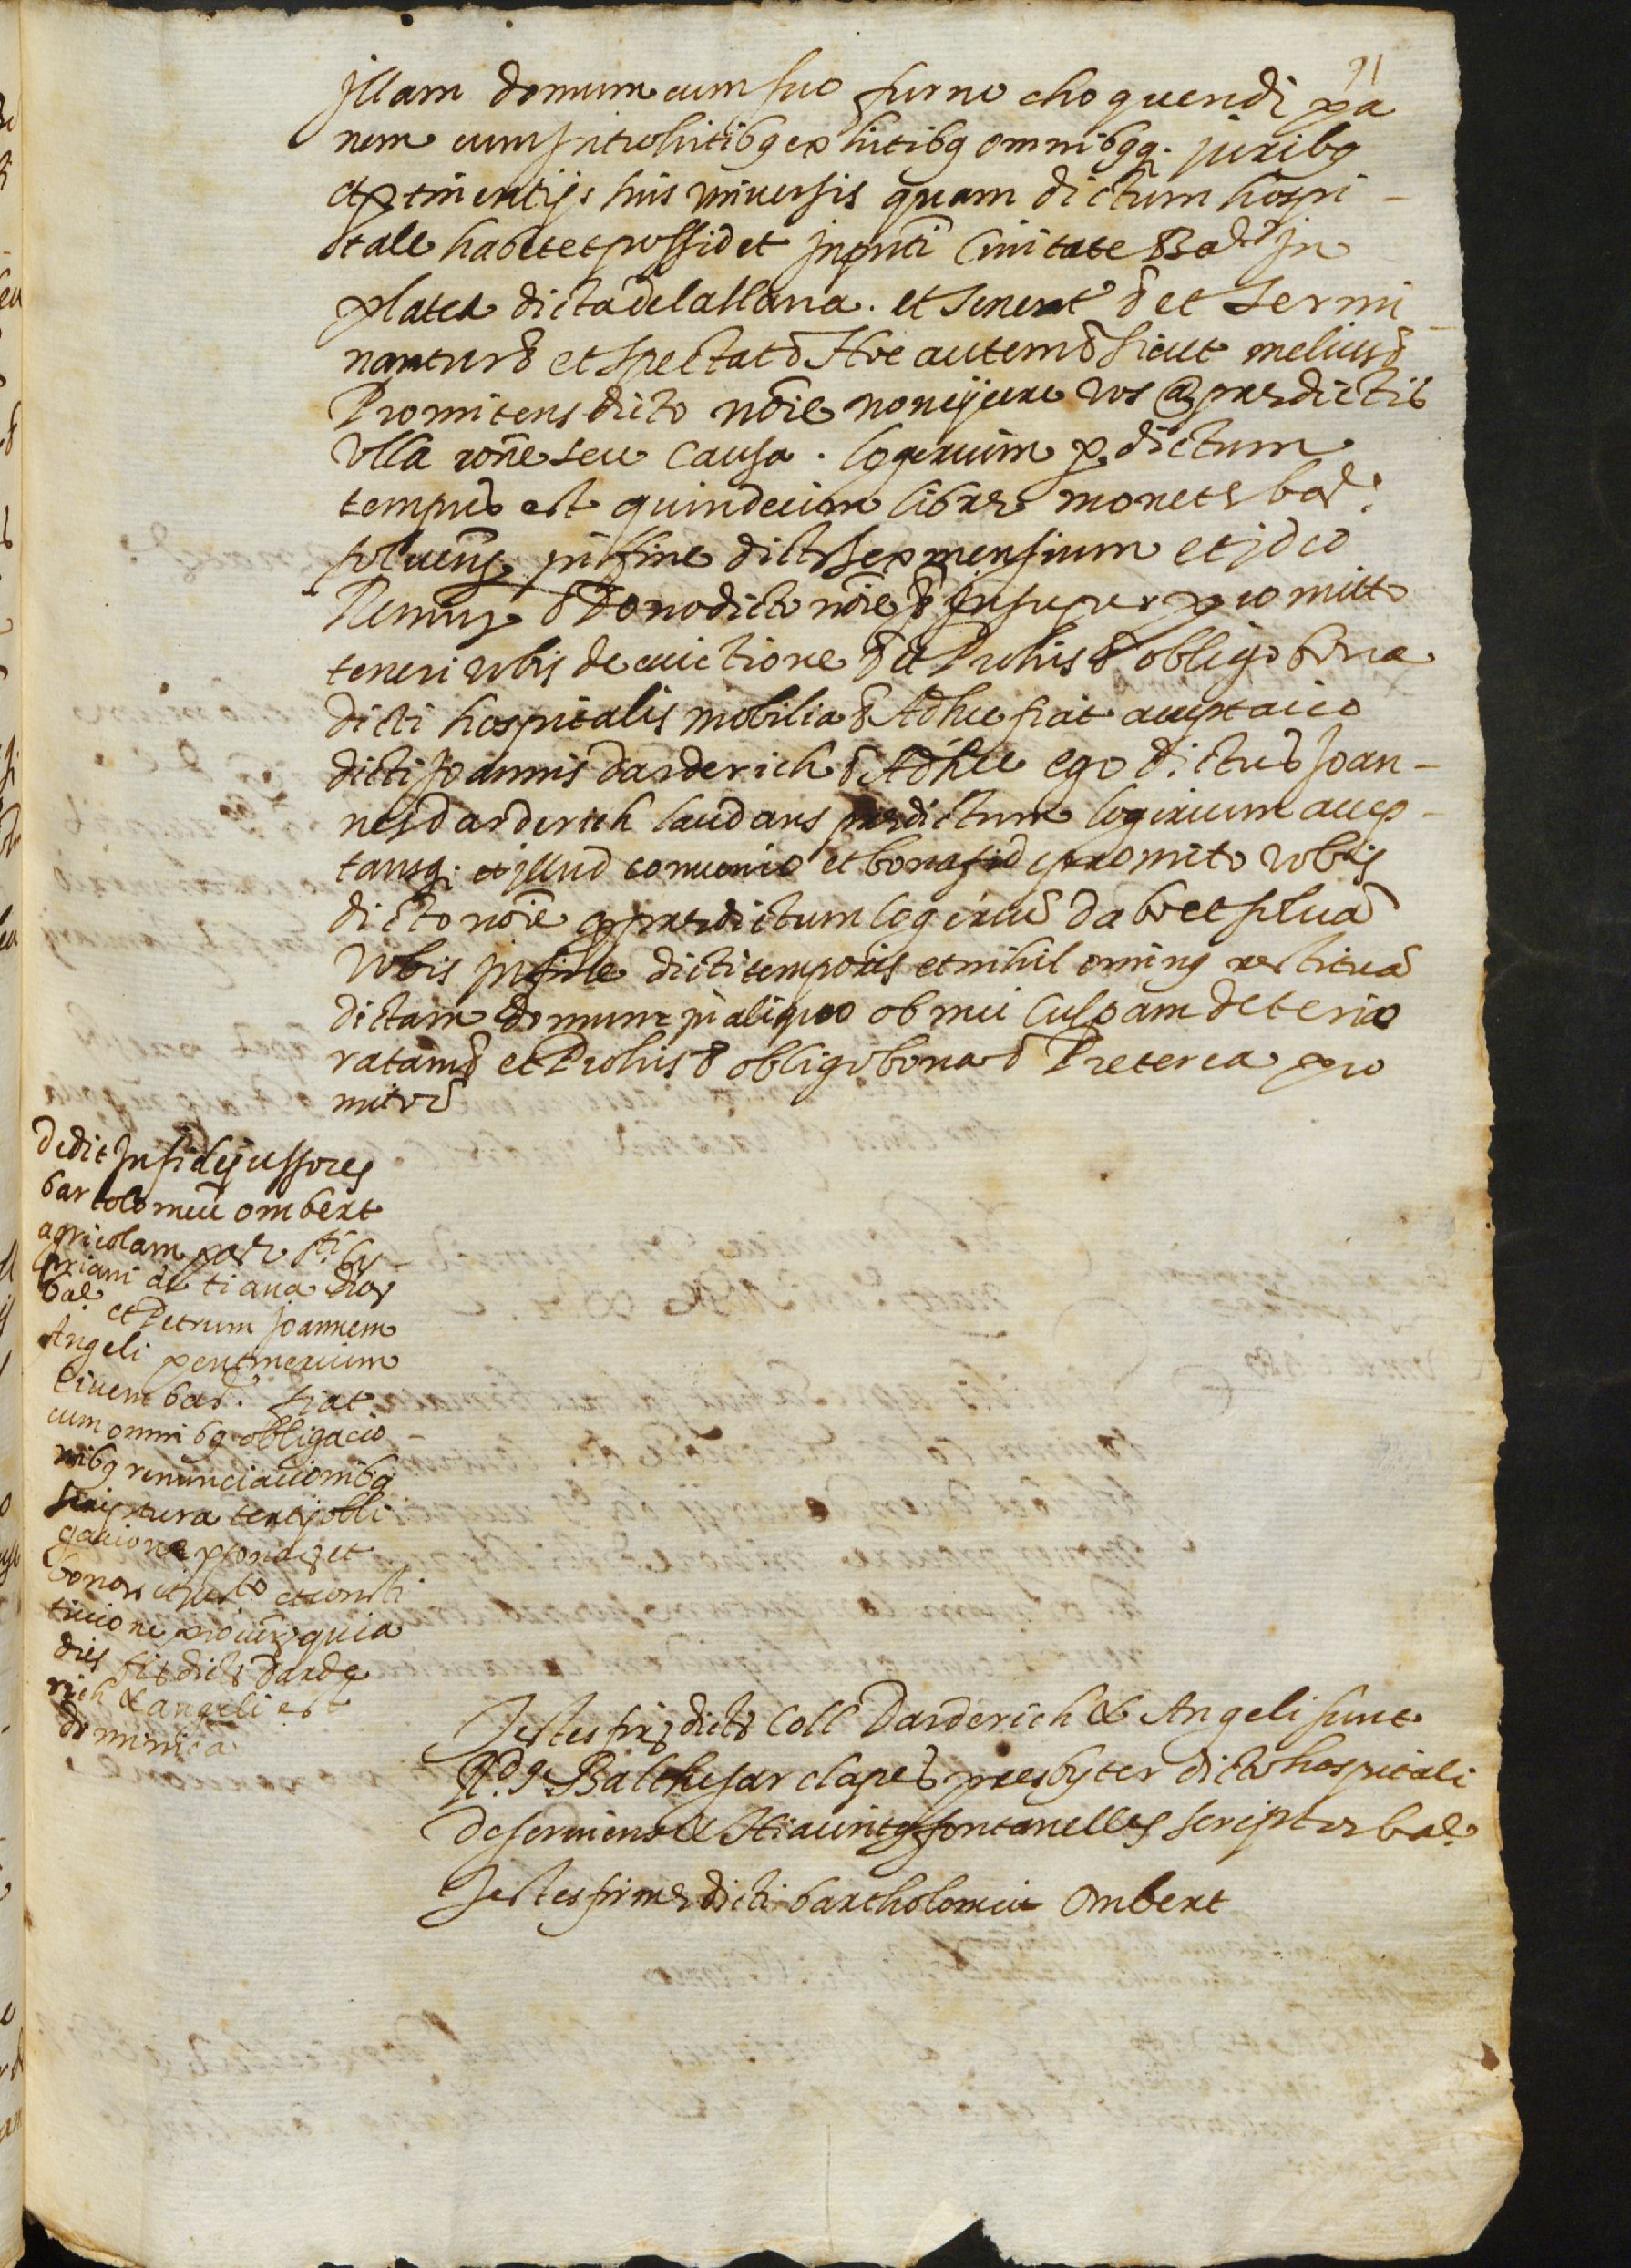 91
Illam domum cum suo furno choquendi pa
nem cum introhitibq exhitibq omnibqq. juribq
et ptinentijs suis universis quam dictum hospi-
tale habet et possidet in pnti Civitate Bale. in
platea dicta de la llana. et tenent & et termi
nantur & et spectat & Hoc autem & sicut melius &
Promitens dicto noie non eijcere vos a predictis
ulla rone seu causa. logerium p dictum
tempus est quindecim libre monete bale.
in fine dict sex mensium et ideo
& Dono dicto noie & Insuper promitto
teneri vobis de evictione & et Prohis & obligo bona
dicti hospitalis mobilia & Adhec fiat acceptacio
dicti Joannis darderich & Ad hec ego dictus Joan-
nes darderich laudans predictum logerium accep-
tansq. et illud convenio et bona fide promito vobis
dicto noie q predictum logeriu dabo et solva
vobis in fine dicti temporis et nihil oming restitua
dictam domum in aliquo ob mei culpam deterio
ratam & et Prohis & obligo bona & Preterea pro
mito &
Dedit In fidejussores
bartolomeu ombert
agricolam par. sti. Cy-
priani de tiana dio.
bale.
et Petrum Joannem
Angeli
civem bar. fiat
cum omnibq obligacio-
nibq renunciacionibq
scriptura tertij obli
gacione psonarz et
bonor et
tucione quia
dies fir dict Darde
rich & angeli est
dominica
Testes firz dict Coll Darderich & Angeli sunt
Rdg Balthesar clapes presbyter dicto hospitali
deserviens & Hiacintg fontanelles scriptor bale.
Testes firme dicti bartholomeu Ombert